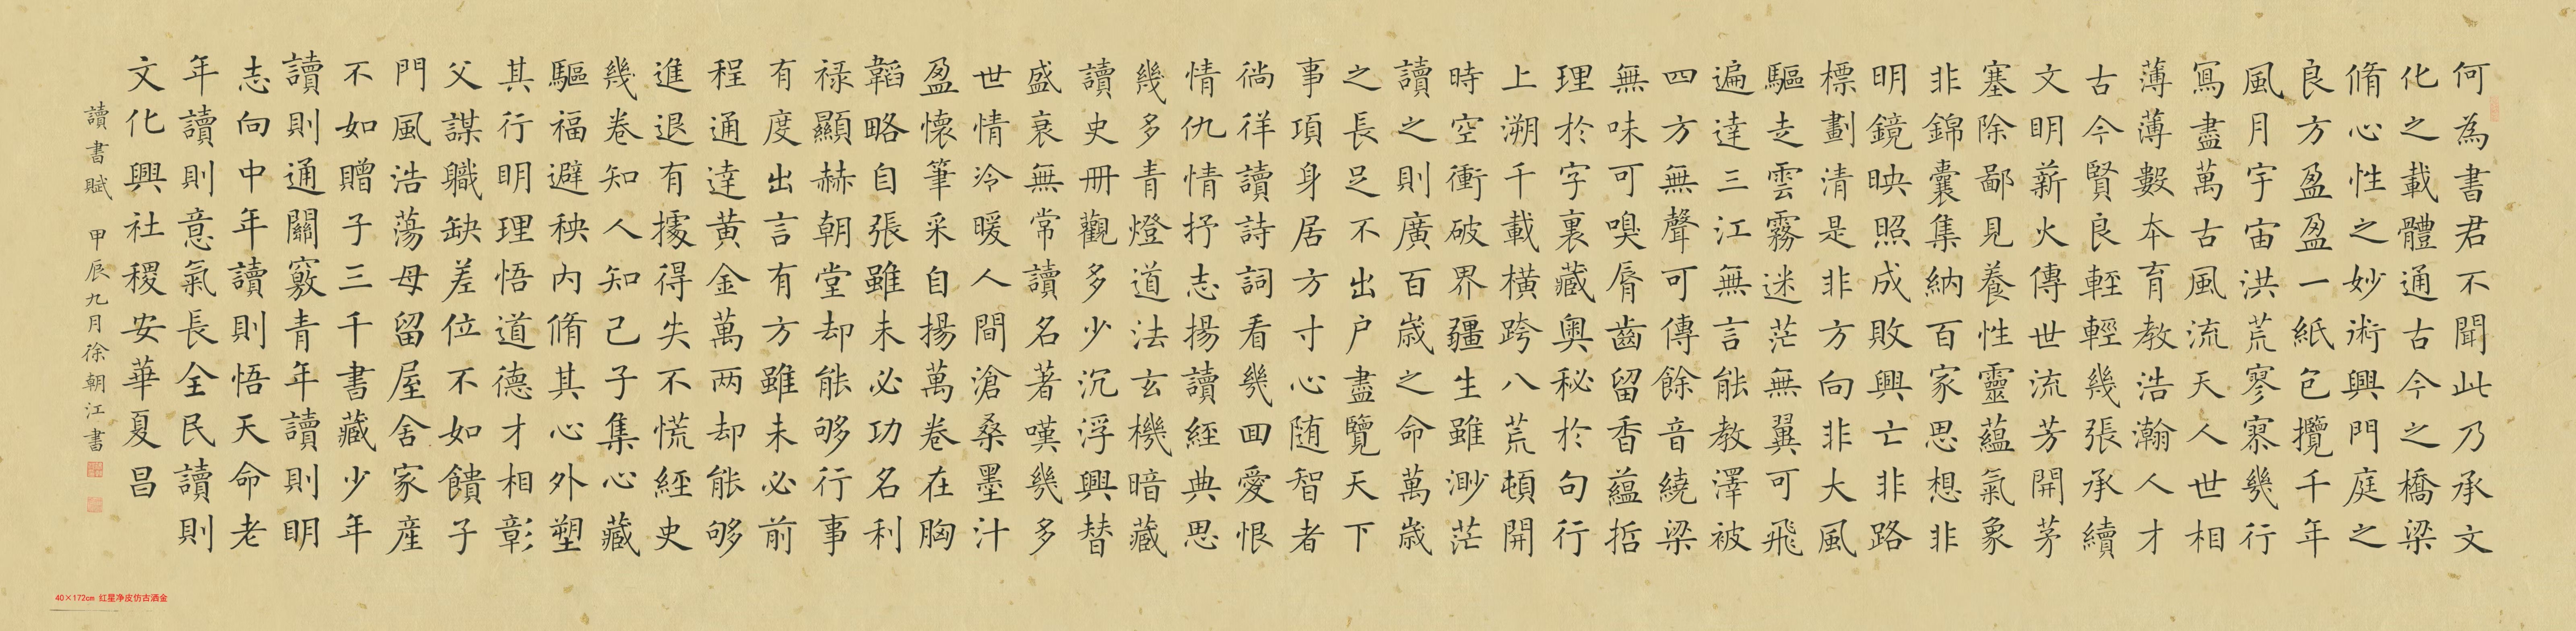 何為書君不聞此乃承文
化之載體通古今之橋梁
脩心性之妙術興門庭之
良方盈盈一紙包攬千年
風月宇宙洪荒寥寥幾行
寫盡萬古風流天人世相
薄薄數本育教浩瀚人才
古今賢良輕輕幾張承續
文明薪火傳世流芳開茅
塞除鄙見養性靈蘊氣象
非錦囊集納百家思想非
明鏡映照成敗興亡非路
標劃清是非方向非大風
驅走雲霧迷茫無翼可飛
遍達三江無言能教澤被
四方無聲可傳餘音繞梁
無味可嗅脣齒留香蘊哲
理於字裏藏奧秘於句行
上溯千載橫跨八荒頓開
時空衝破界疆生雖渺茫
讀之則廣百歲之命萬歲
之長足不出户盡覽天下
事項身居方寸心随智者
徜徉讀詩詞看幾回愛恨
情仇情抒志揚讀經典思
幾多青燈道法玄機暗藏
讀史冊觀多少沉浮興替
盛衰無常讀名著嘆幾多
世情冷暖人間滄桑墨汁
盈懷筆采自揚萬卷在胸
韜略自張雖未必功名利
禄顯赫朝堂却能够行事
有度出言有方雖未必前
程通達黄金萬两却能够
進退有據得失不慌經史
幾卷知人知己子集心藏
驅福避秧内脩其心外塑
其行明理悟道德才相彰
父謀職缺差位不如饋子
門風浩蕩母留屋舍家産
不如贈子三千書藏少年
讀則通關竅青年讀則明
志向中年讀則悟天命老
年讀則意氣長全民讀則
文化興社稷安華夏昌
讀書賦 甲辰九月徐朝江書
40×172cm 红星净皮仿古洒金